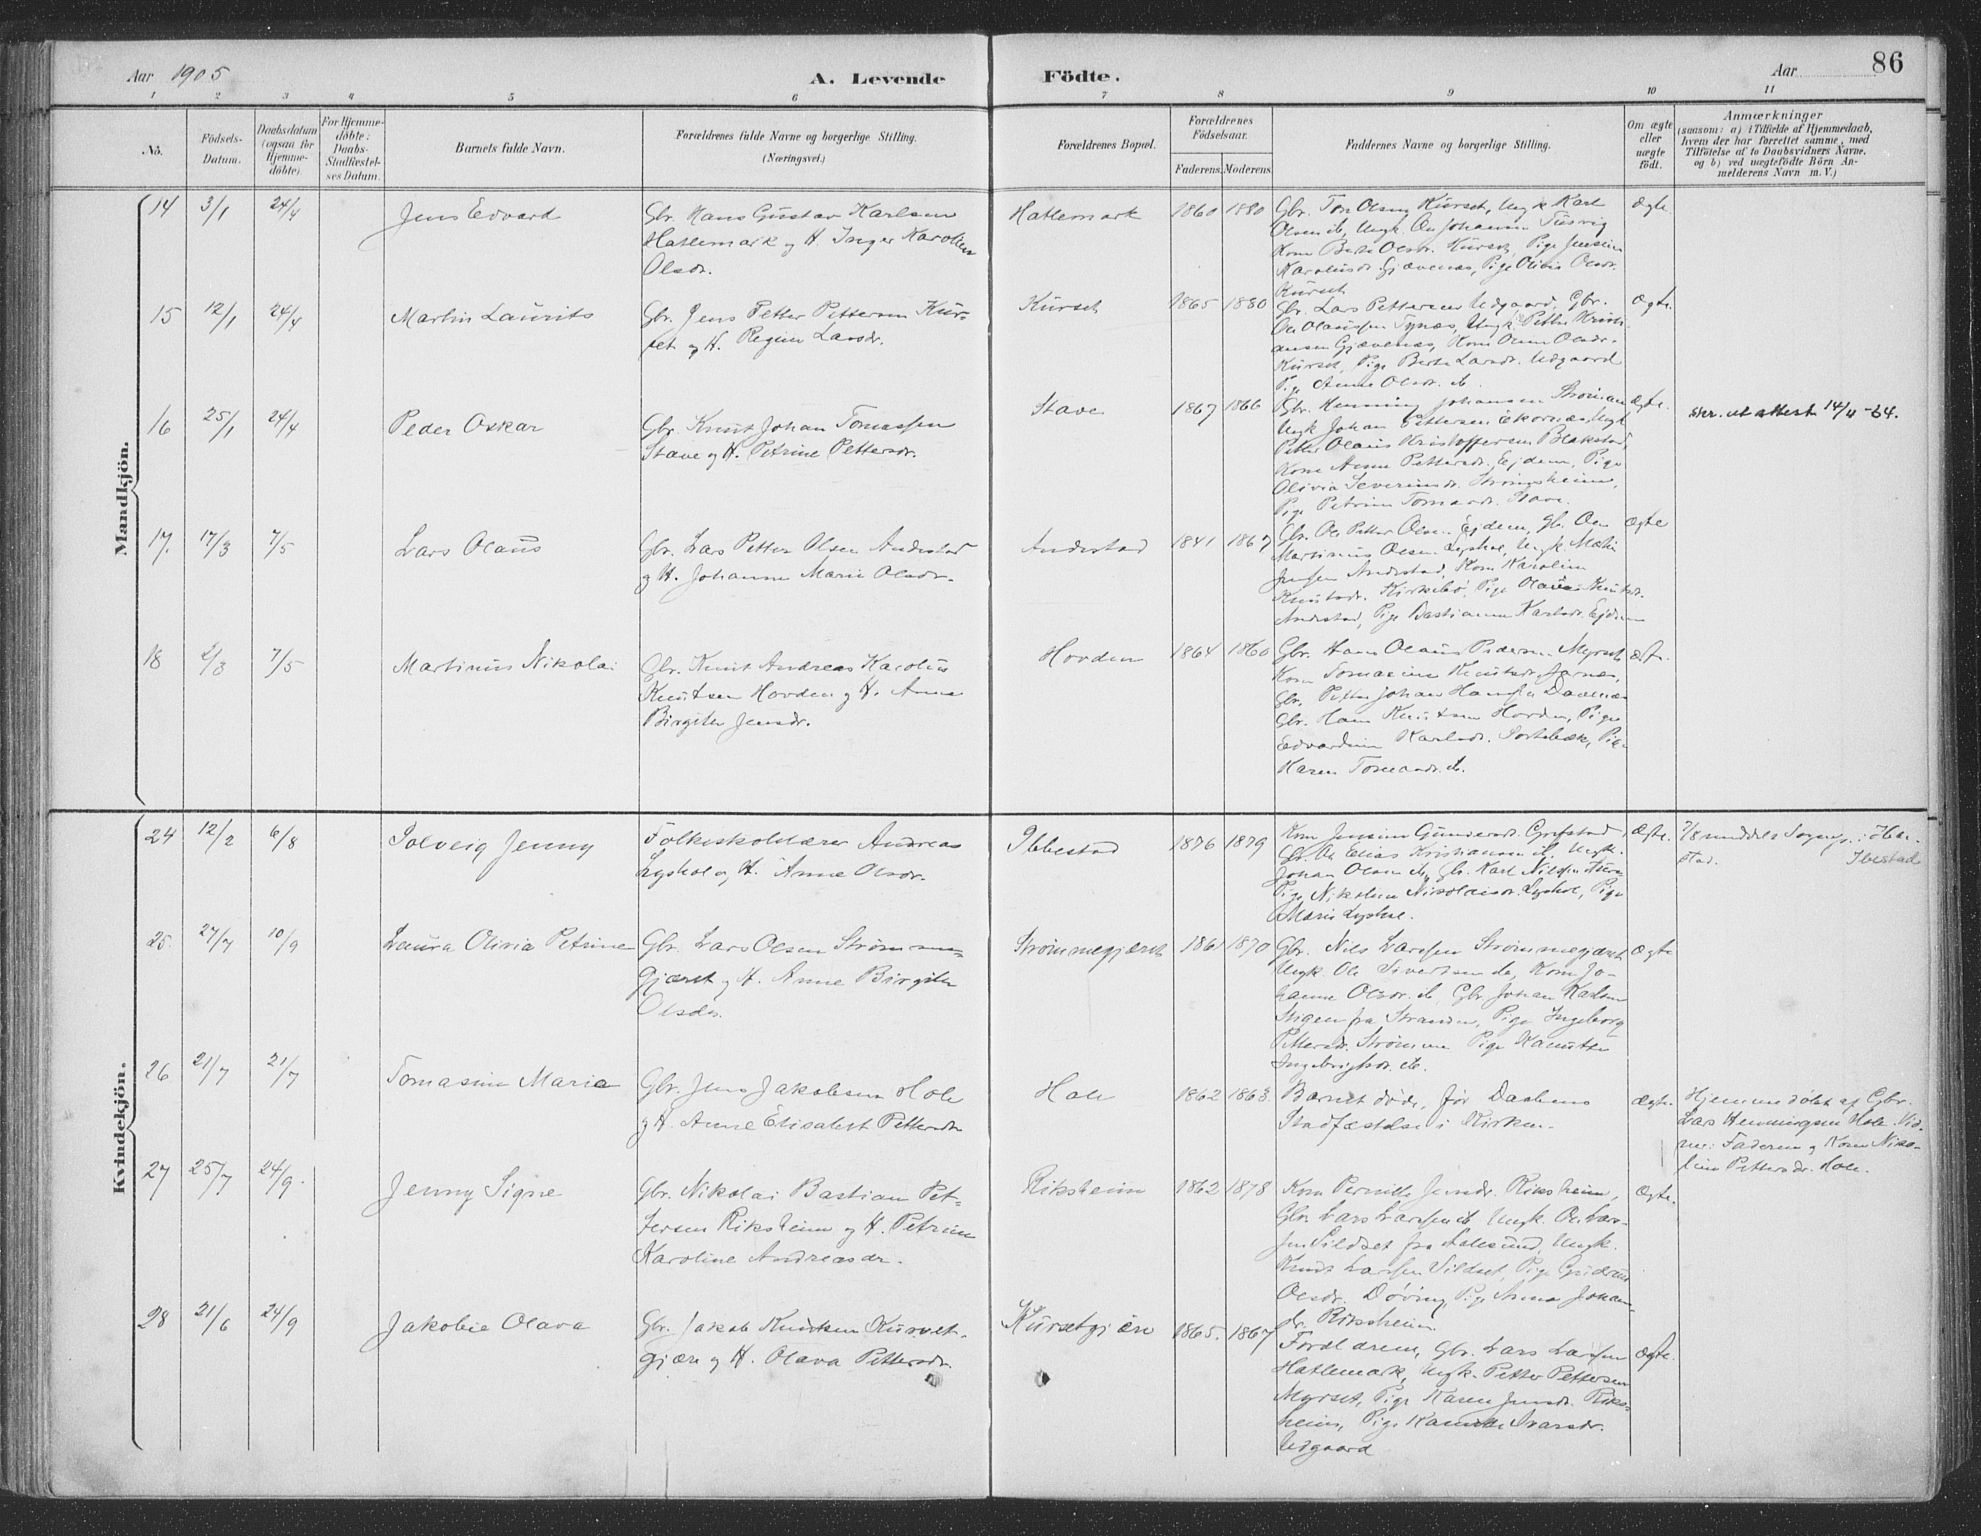 Aar 1905
A. Levende Födte.
Aar
86
1 2 3 4 5 6 7 8 9 10 11
No.
Födsels-
Datum.
Daabsdatum
(ogsaa for
Hjemme-
döbte).
For Hjemme-
döbte:
Daabs-
Stadfæstel-
ses Datum.
Barnets fulde Navn.
Forældrenes fulde Navne og borgerlige Stilling.
(Næringsvei.)
Forældrenes Bopæl.
Forældrenes
Födselsaar.
Faderens. Moderens.
Faddernes Navne og borgerlige Stilling.
Om ægte
eller
uægte
födt.
Anmærkninger
(saasom: a) i Tilfælde af Hjemmedaab,
hvem der har forrettet samme, med
Tilföielse af to Daabsvidners Navne.
og b) ved uægtefödte Börn An-
melderens Navn m. V.)
Mandkjön.
14 3/1 24/4 Jens Edvard
Gbr. Hans Gustav Karlsen
Hatlemark og H. Inger Karoline
Olsdr.
Hatlemark 1860 1880
Gbr. Tore Olsen Kurset, Ungk. Karl
Olsen ib., Ungk. Ole Johansen Tusvig
Kone Berte Olsdr. Kurset, Pige Jensine
Karolusdr. Gjævenæs, Pige Olivia Olsdr.
Kurset
Ægte.
15 12/1 24/4 Martin Laurits
Gbr. Jens Petter Pettersen Kur-
set og H. Regine Larsdr.
Kurset 1865 1880
Gbr. Lars Pettersen Udgaard, Gbr.
Ole Olaussen Tynæs, Ungk. Petter Kristi-
ansen Gjævenæs, Kone Oline Olsdr.
Kurset, Pige Berte Larsdr. Udgaard
Pige Anne Olsdr. ib.
Ægte.
16 25/1 24/4 Peder Oskar
Gbr. Knut Johan Tomassen
Stave og H. Petrine Pettersdr.
Stave 1867 1866
Gbr. Henning Johansen Strøman
Ungk. Johan Pettersen Ekornæs, Ungk.
Peter Olaus Kristoffersen Blakstad,
Kone Anne Pettersdr. Ejdem, Pige
Olivia Severinsdr. Strømsheim,
Pige Petrine Tomasdr. Stave.
Ægte.
skr. ut attest 14/4-64.
17. 17/3 7/5 Lars Olaus
Gbr. Lars Petter Olsen Andestad
og H. Johanne Marie Olsdr.
Andestad 1841 1867
Gbr. Ole Petter Olsen Ejdem, Gbr. Ole
Martinus Olsen Lyshol, Ungk. Martin
Jensen Andestad, Kone Karoline
Knutsdr. Kirkebø, Pige Olausine Knutsdr.
Andestad, Pige Bastianne Karlsdr. Ejdem
Ægte
18 2/3 7/5 Martinus Nikolai
Gbr. Knut Andreas Karolus
Knutsen Hovden og H. Anne
Birgite Jensdr.
Hovden 1864 1860
Gbr. Hans Olaus Pedersen Myrset
Kone Tomasine Knutsdr. Jarnæs,
Gbr. Petter Johan Hansen Davenæs
Gbr. Hans Knutsen Hovden, Pige
Edvardine Karlsdr. Sortebæk, Pige
Karen Tomasdr. ib.
ægte.
Kvindekjön.
24 12/2 6/8 Solveig Jenny
Folkeskolelærer Andreas
Lyshol og H. Anne Olsdr.
Ibbestad 1876 1879
Kone Jensine Gundersdr. Grytstad
Gbr. Ole Elias Kristiansen ib., Ungk.
Johan Olsen ib., Gbr. Karl Nilsen Aure
Pige Nikoline Nikolaisdr. Lyshol, Pige
Marie Lyshol.
Ægte.
7/8 meddelt Sogneprst. i Ibe-
stad. Ibestad
25. 27/7 10/9 Laura Olivia Petrine
Gbr. Lars Olsen Strømme-
gjæret og H. Anne Birgite
Olsdr.
Strømmegjæret 1861 1870
Gbr. Nils Larssen Strømmegjæret
Ungk. Ole Sivertsen ib., Kone Jo-
hanne Olsdr. ib., Gbr. Johan Karlsen
Stigen fra Stranden, Pige Ingeborg
Pettersdr. Strømme Pige Kanutte
Ingebrigtsdr. ib.
Ægte
26 21/7 21/7 Tomasine Maria
Gbr. Jens Jakobsen Hole
og H. Anne Elisabet Pettersdr.
Hole 1862 1863
Barnet døde, før Daabens
Stadfæstelse i Kirken.
Ægte.
Hjemmedøbt af Gbr.
Lars Henningsen Hole. Vid-
ner: Faderen og Kone Niko-
line Pettersdr. Hole.
27 25/7 24/9. Jenny Signe
Gbr. Nikolai Bastian Pet-
tersen Riksheim og H. Petrine
Karoline Andreasdr.
Riksheim 1862 1878
Kone Pernille Jensdr. Riksheim,
Gbr. Lars Larssen ib. Ungk. Ole Lars-
sen Sildset fra Aalesund, Ungk.
Knut Larssen Sildset, Pige Gudrun
Olsdr. Døving, Pige Anna Johan-
dr. Riksheim.
Ægte.
28 21/6 24/9 Jakobie Olava
Gbr. Jakob Knutsen Kurset-
gjære og H. Olava Pettersdr.
Kursetgjære 1865. 1867
Forældrene, Gbr. Lars Larssen
Hatlemark, Ungk. Petter Pettersen
Myrset, Pige Karen Jensdr. Riks-
heim, Pige Kanutte Ivarsdr.
Udgaard
Ægte.